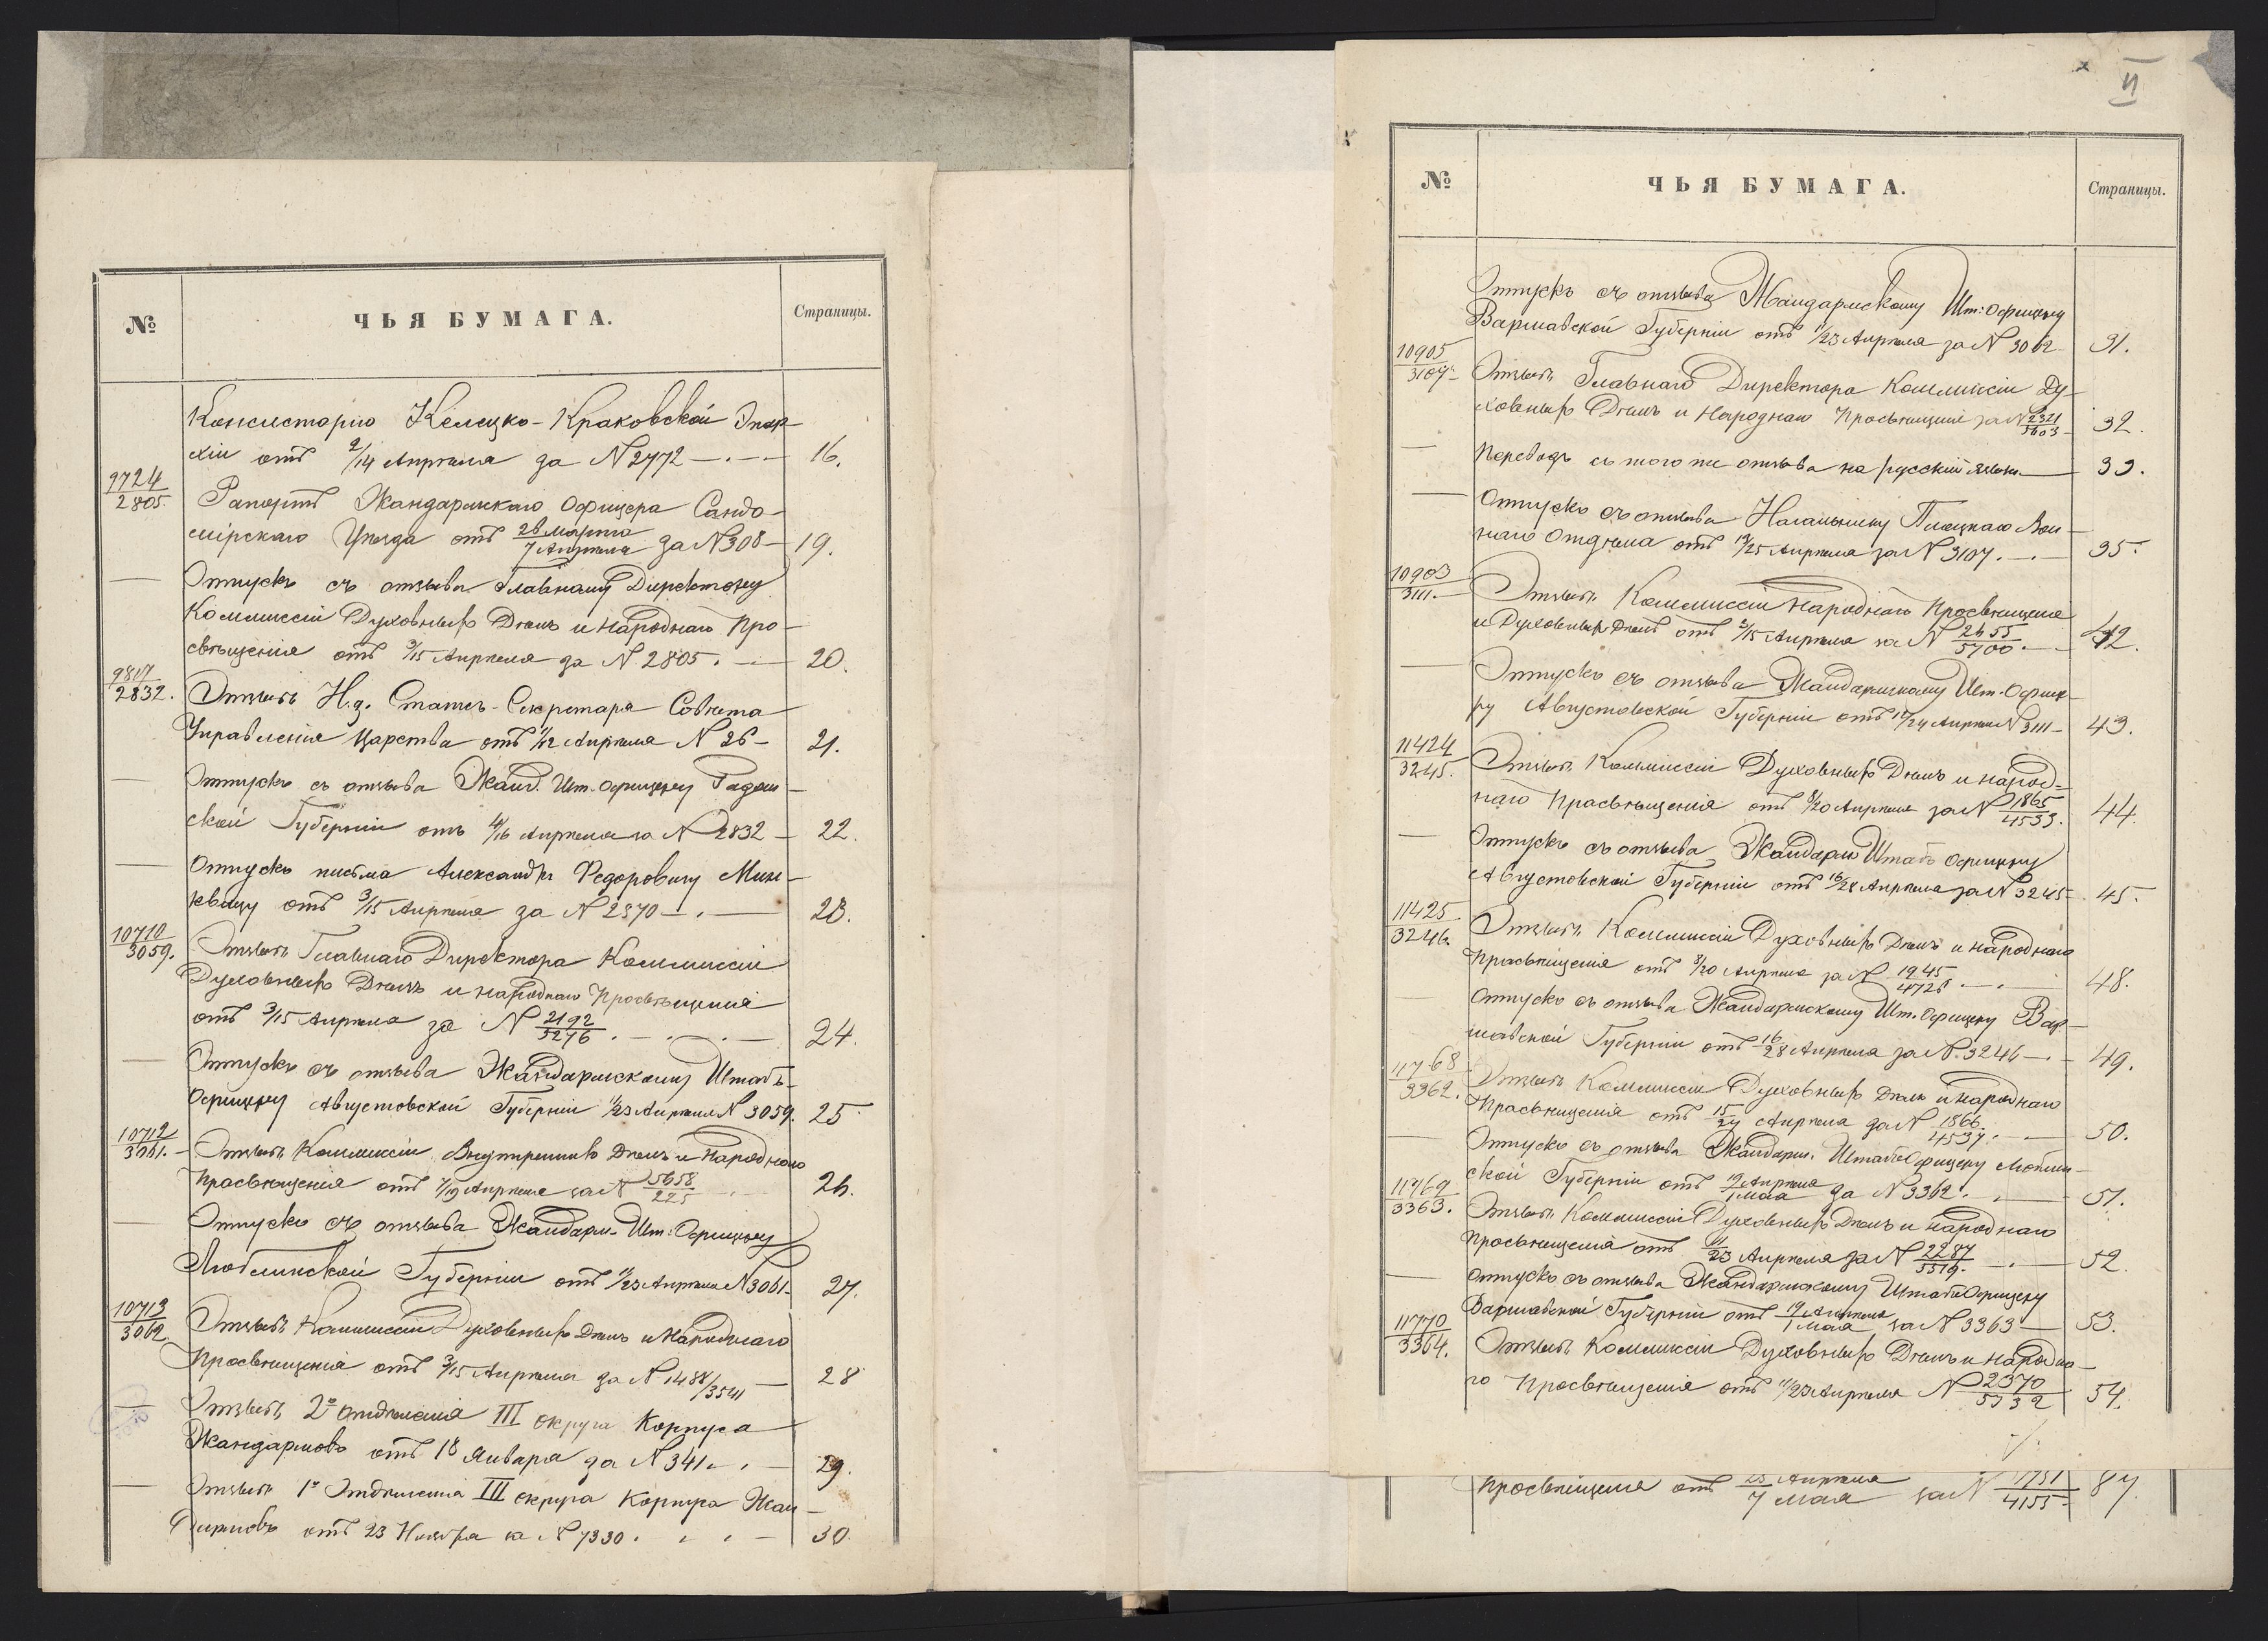 № ЧЬЯ БУМАГА. Страницы.
Консисторію Келецко-Краковской Эпар-
хіи отъ 2/14 Апрѣля за № 2772 — 16.
9724/2805. Рапортъ Жандармскаго Офицера Сандо-
мірскаго Уѣзда отъ 26 Марта/7 Апрѣля за № 308 — 19.
— Отпускъ съ отзыва Главному Директору
Коммиссіи Духовныхъ Дѣлъ и Народнаго Про-
свѣщенія отъ 3/15 Апрѣля за № 2805. — 20.
9817/2832. Отзывъ И.д. Статсъ-Секретаря Совѣта
Управленія Царства отъ 1/12 Апрѣля № 26 — 21.
— Отпускъ съ отзыва Жанд. Шт. Офицеру Радом-
ской Губерніи отъ 4/16 Апрѣля за № 2832 — 22.
— Отпускъ письма Александръ Федоровичу Мин-
квицу отъ 3/15 Апрѣля за № 2870 — 23.
10710/3059. Отзывъ Главнаго Директора Коммиссіи
Духовныхъ Дѣлъ и народнаго Просвѣщенія
отъ 3/15 Апрѣля за № 2192/5276. — 24.
— Отпускъ съ отзыва Жандармскому Штабъ-
Офицеру Августовской Губерніи 11/23 Апрѣля № 3059. 25
10712/3061. Отзывъ Коммиссіи Внутреннихъ Дѣлъ и Народнаго
Просвѣщенія отъ 7/19 Апрѣля за № 5658/225 26.
— Отпускъ съ отзыва Жандарм. Шт: Офицеру
Люблинской Губерніи отъ 11/23 Апрѣля № 3061 — 27.
10713/3062. Отзывъ Коммиссіи Духовныхъ Дѣлъ и Народнаго
Просвѣщенія отъ 3/15 Апрѣля за № 1488/3541 — 28
— Отзывъ 2го отдѣленія III округа Корпуса
Жандармовъ отъ 18 Января за № 341. — 29.
— Отзывъ 1го Отдѣленія III округа Корпуса Жан-
дармовъ отъ 23 Ноября за № 7330. — 30.
II
№ ЧЬЯ БУМАГА. Страницы.
Отпускъ съ отзыва Жандармскому Шт: Офицеру
Варшавской Губерніи отъ 11/23 Апрѣля за № 3062 31.
10905/3107. Отзывъ Главнаго Директора Коммиссіи Ду-
ховныхъ Дѣлъ и Народнаго Просвѣщенія за № 2321/5603 32.
— Переводъ съ того же отзыва на русскій языкъ — 33.
— Отпускъ съ отзыва Начальнику Плоцкаго Воен-
наго Отдѣла отъ 13/25 Апрѣля за № 3107. — 35.
10903/3111. Отзывъ Коммиссіи Народнаго Просвѣщенія
и Духовныхъ Дѣлъ отъ 3/15 Апрѣля за № 2455/5700. — 42.
— Отпускъ съ отзыва Жандармскому Шт. Офице-
ру Августовской Губерніи отъ 12/24 Апрѣля № 3111 — 43.
11424/3245. Отзывъ Коммиссіи Духовныхъ Дѣлъ и народ-
наго Просвѣщенія отъ 8/20 Апрѣля за № 1865/4533. 44.
— Отпускъ съ отзыва Жандарм Штабъ Офицеру
Августовской Губерніи отъ 16/28 Апрѣля за № 3245 — 45.
11425/3246. Отзывъ Коммиссіи Духовныхъ Дѣлъ и народнаго
Просвѣщенія отъ 8/20 Апрѣля за № 1945/4726. — 48.
Отпускъ съ отзыва Жандармскому Шт. Офицеру Вар-
шавской Губерніи отъ 16/28 Апрѣля за № 3246 — 49.
11768/3362. Отзывъ Коммиссіи Духовныхъ Дѣлъ и Народнаго
Просвѣщенія отъ 15/27 Апрѣля за № 1866/4537. — 50.
— Отпускъ съ отзыва Жандарм. Штабъ Офицеру Люблин-
ской Губерніи отъ 19 Апрѣля/1 Мая за № 3362. — 51.
11769/3363. Отзывъ Коммиссіи Духовныхъ Дѣлъ и народнаго
Просвѣщенія отъ 11/23 Апрѣля за № 2287/5519. — 52.
— Отпускъ съ отзыва Жандармскому Штабъ Офицеру
Варшавской Губерніи отъ 19 Апрѣля/1 Мая за № 3363 — 53.
11770/3364. Отзывъ Коммиссіи Духовныхъ Дѣлъ и Народна-
го Просвѣщенія отъ 11/23 Апрѣля № 2370/5732 54.
Просвѣщенія отъ 25 Апрѣля/7 Мая за № 1751/4155 — 87.